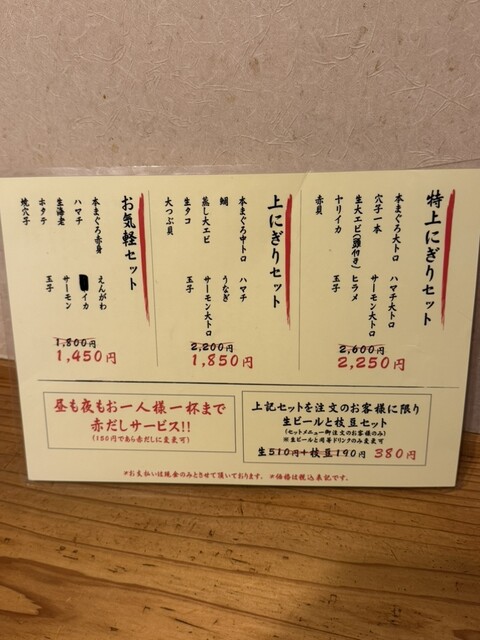 特上にぎりセット
本まぐろ大トロ ハマチ大トロ
穴子一本 サーモン大トロ
生大エビ(頭付き) ヒラメ
ヤリイカ 玉子
赤貝
2,600円
2,250円
上にぎりセット
本まぐろ中トロ ハマチ
鯛 うなぎ
蒸し大エビ サーモン大トロ
生タコ 玉子
大つぶ貝
2,200円
1,850円
お気軽セット
本まぐろ赤身 えんがわ
ハマチ イカ
生海老 サーモン
ホタテ 玉子
焼穴子
1,800円
1,450円
昼も夜もお一人様一杯まで
赤だしサービス!!
(150円であら赤だしに変更可)
上記セットを注文のお客様に限り
生ビールと枝豆セット
(セットメニュー御注文のお客様のみ)
※生ビールと同等ドリンクのみ変更可
生510円+枝豆190円 380円
※お支払いは現金のみとさせて頂いております。 ※価格は税込表記です。